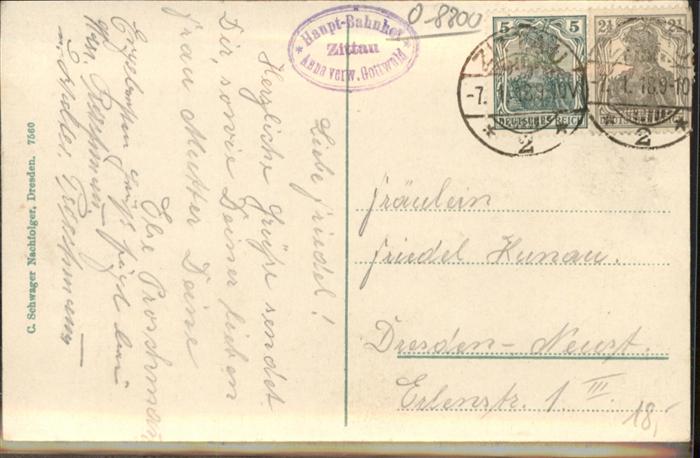 Haupt-Bahnhof
Zittau
Anna verw. Gottwald
O 8800
5 5
DEUTSCHES REICH
2½ 2½
DEUTSCHES REICH
ZITTAU
-7. 1. 18. 9-10V
2
ZITTAU
-7. 1. 18. 9-10
2
Liebe Friedel!
Herzliche Grüße sendet
Dir, sowie Deiner lieben
Frau Mutter Deine
Else
Ergebensten Gruß fügt bei
Fräulein
Friedel Kunau.
Dresden-Neust.
Erlenstr. 1 III.
18,-
C. Schwager Nachfolger, Dresden. 7560